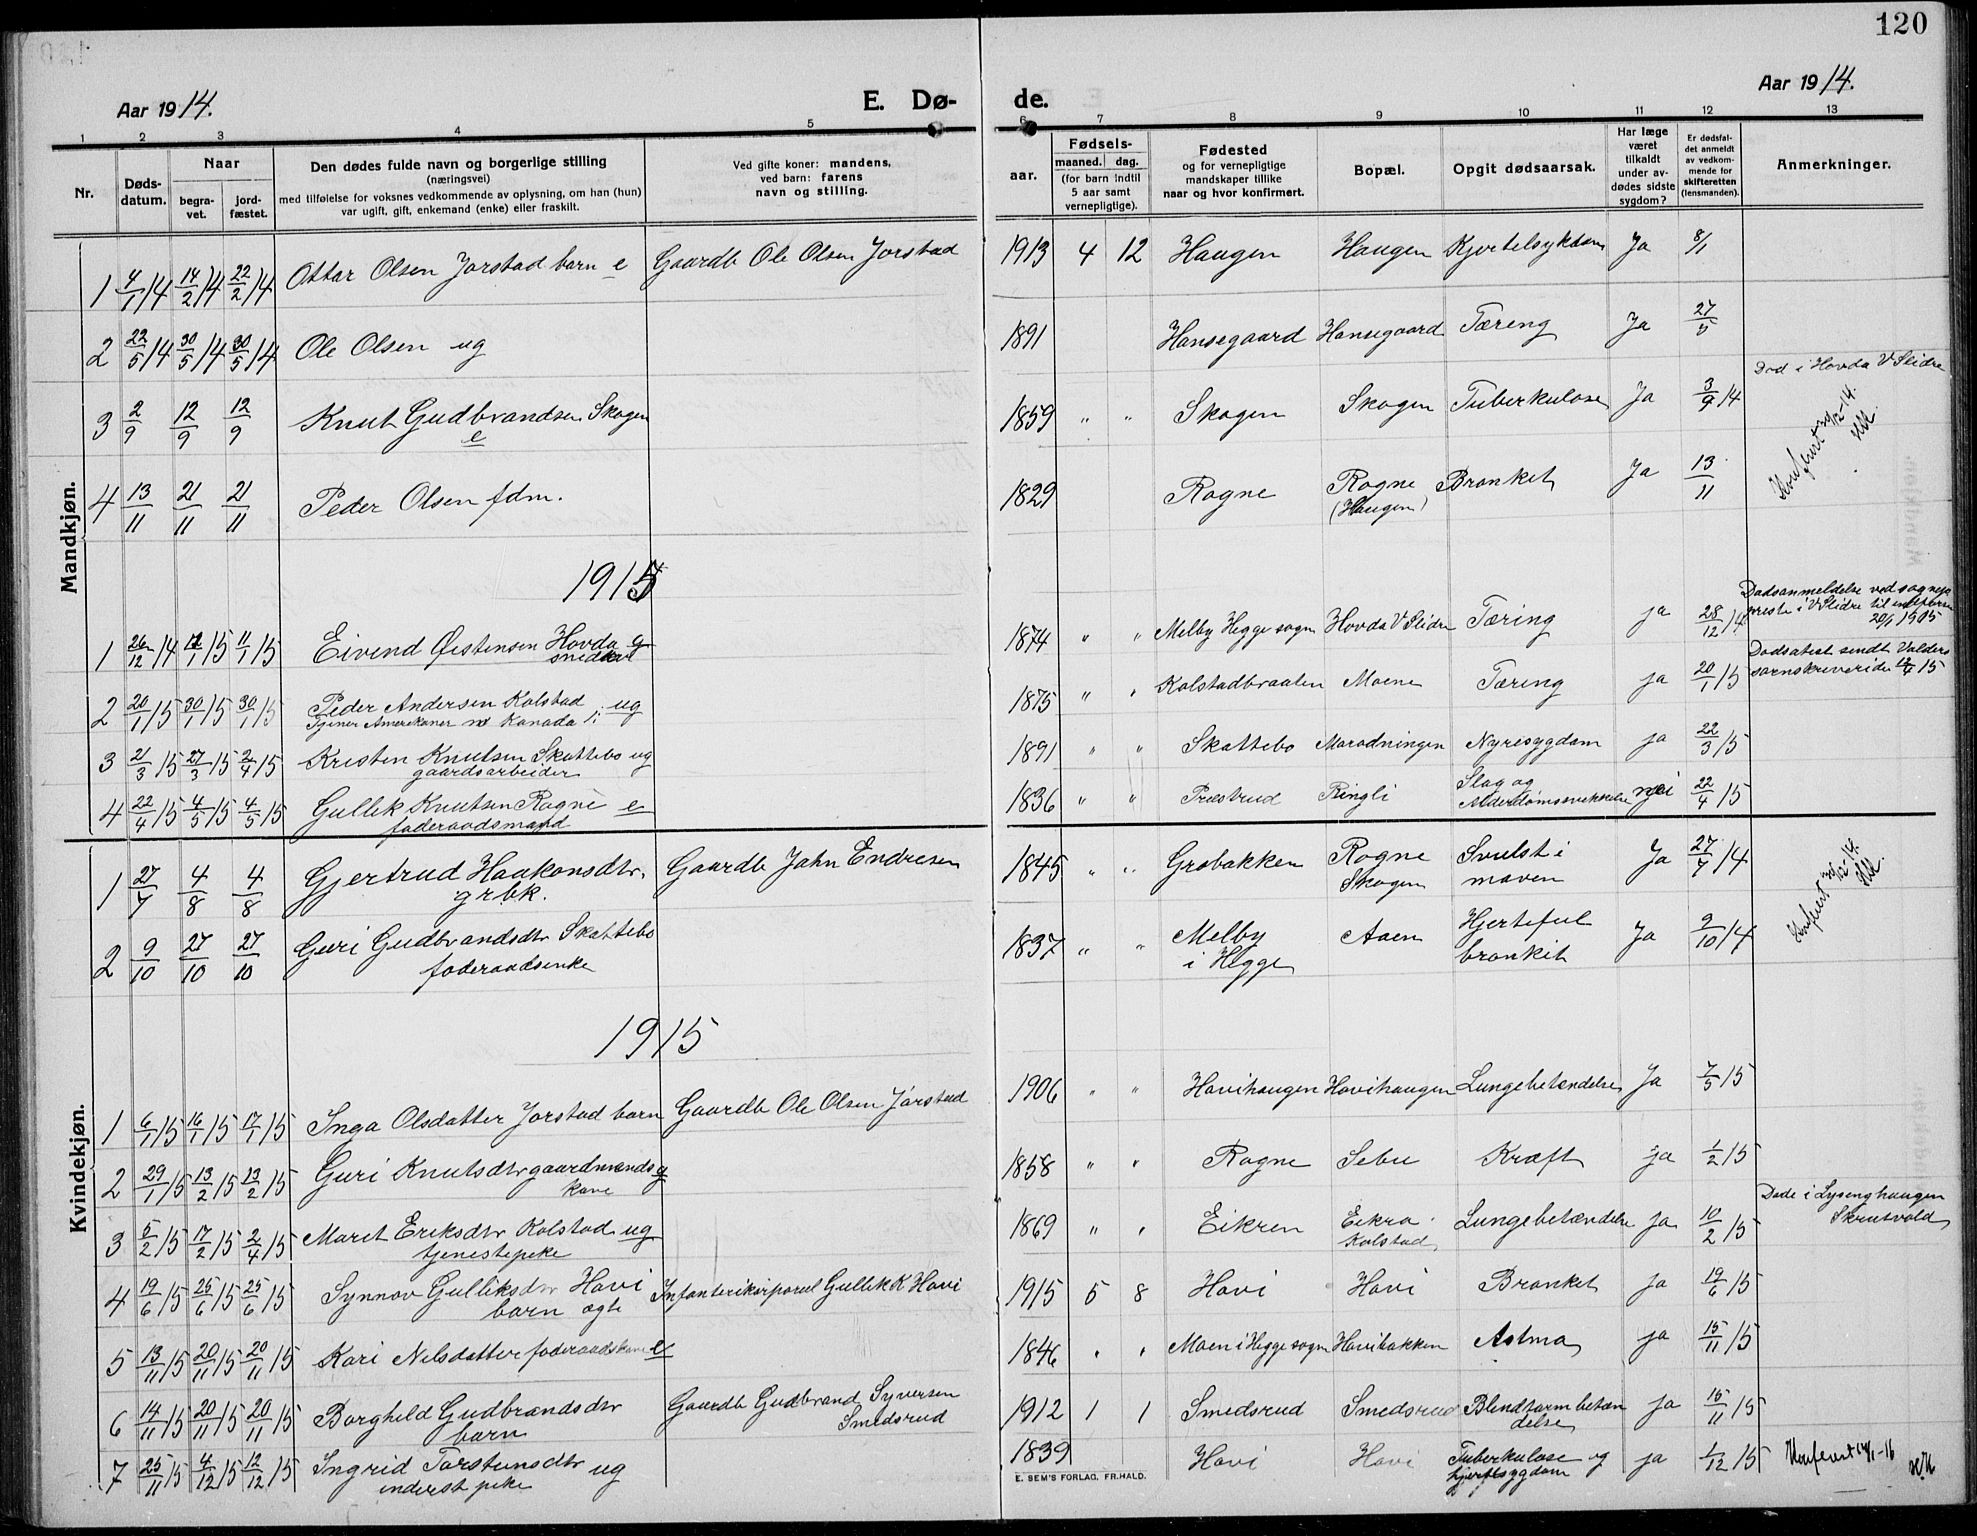 120
Aar 1914.
E. Dø-
de.
Aar 1914.
1 2 3 4 5 6 7 8 9 10 11 12 13
Nr.
Døds-
datum.
Naar
begra-
vet.
jord-
fæstet.
Den dødes fulde navn og borgerlige stilling
(næringsvei)
med tilføielse for voksnes vedkommende av oplysning, om han (hun)
var ugift, gift, enkemand (enke) eller fraskilt.
Ved gifte koner: mandens,
ved barn: farens
navn og stilling.
aar.
Fødsels-
maaned. dag.
(for barn indtil
5 aar samt
vernepligtige).
Fødested
og for vernepligtige
mandskaper tillike
naar og hvor konfirmert.
Bopæl.
Opgit dødsaarsak.
Har læge
været
tilkaldt
under av-
dødes sidste
sygdom?
Er dødsfal-
det anmeldt
av vedkom-
mende for
skifteretten
(lensmanden).
Anmerkninger.
Mandkjøn.
1 4/1 14 14/2 14 22/2 14 Ottar Olsen Jorstad barn e Gaardb Ole Olsen Jorstad 1913 4 12 Haugen Haugen Kjertelsykdom Ja 8/1
2 22/5 14 30/5 14 30/5 14 Ole Olsen ug 1891 Hansegaard Hansegaard Tæring Ja 27/5
Død i Hovda V Slidre
3 2/9 12/9 12/9 Knut Gudbrandsen Skogen 1859 " " Skogen Skogen Tuberkulose Ja 3/9 14
e
4 13/11 21/11 21/11 Peder Olsen fdm. 1829 Rogne Rogne Bronkit Ja 13/11
(Haugen)
Konferert 20/12-14.
1915
Dødsanmeldelse ved sogne-
1 26/12 14 11/1 15 11/1 15 Eivend Østensen Hovda g 1874 " " Melby Hegge sogn Hovda V Slidre Tæring ja 28/12 14
snedker
20/1 1915
Dødsatest sendt Valdres
sorenskriveride 12/4 15
2 20/1 15 30/1 15 30/1 15 Peder Andersen Kolstad ug 1875 " " Kolstadbraaten Moene Tæring ja 20/1 15
3 21/3 15 27/3 15 2/4 15 Kristen Knutsen Skattebo ug 1891 " " Skattebo Marodningen Nyresygdom ja 22/3 15
gaardsarbeider
4 22/4 15 4/5 15 4/5 15 Gullik Knutsen Rogne e 1836 " " Præstrud Ringli Slag og nei 22/4 15
føderaadsmand
Kvindekjøn.
1 27/7 4/8 4/8 Gjertrud Haakonsdtr. Gaardb John Endresen 1845 " " Grøbakken Rogne Svulst i Ja 27/7 14
grbk. Skogen maven
2 9/10 27/10 27/10 Guri Gudbrandsdtr Skattebo 1837 " " Melby Aaen Hjertefeil Ja 9/10 14
føderaadsenke i Hegge bronkit
Konferert 20/12-14.
1915
1 6/1 15 16/1 15 17/1 15 Inga Olsdatter Jorstad barn Gaardb Ole Olsen Jorstad 1906 " " Hovihaugen Hovihaugen Lungebetændelse Ja 7/5 15
2 29/1 15 13/2 15 13/2 15 Guri Knutsdtr gaardmands g 1858 " " Rogne Sebu Kræft ja 1/2 15
kone
Døde i Lysenghaugen
Skrutvold
3 5/2 15 17/2 15 2/4 15 Marit Eriksdtr Kolstad ug 1869 " " Eikren Eikra Lungebetændelse ja 10/2 15
tjenestepike Kolstad
4 19/6 15 25/6 15 25/6 15 Synnøv Gulliksdtr Hovi Infanterikorporal Gullik K Hovi 1915 5 8 Hovi Hovi Bronkit ja 19/6 15
barn ægte
5 13/11 15 20/11 15 20/11 15 Kari Nilsdatter føderaadskone e 1846 " " Moen i Hegge sogn Hovibakken Astma ja 15/11 15
6 14/11 15 20/11 15 20/11 15 Borghild Gudbrandsdtr Gaardb Gudbrand Syversen 1912 1 1 Smedsrud Smedsrud Blindtarmbetæn ja 15/11 15
barn Smedsrud delse
7 25/11 15 4/12 15 12/12 15 Ingrid Torstensdtr ug 1839 Hovi Hovi Tuberkulose og ja 1/12 15
inderst pike hjertesygdom
Konferert 14/1-16
E. SEM'S FORLAG, FR.HALD.